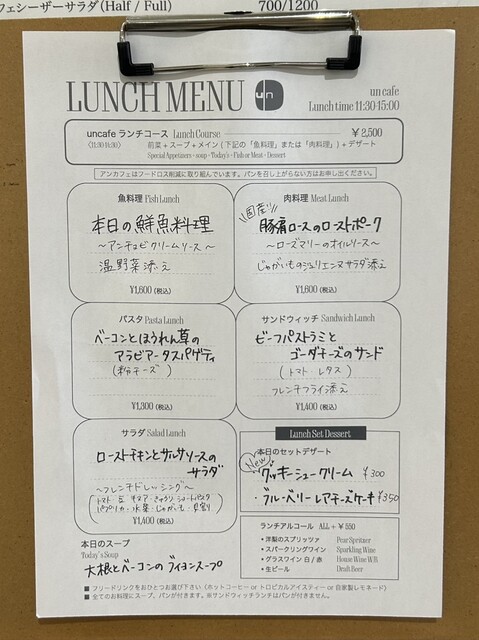 フェシーザーサラダ(Half / Full) 700/1200
LUNCH MENU un
un cafe
Lunch time 11:30-15:00
uncafe ランチコース Lunch Course ¥2,500
前菜+スープ+メイン(下記の「魚料理」または「肉料理」)+デザート
Special Appetizers・soup・Today's・Fish or Meat・Dessert
アンカフェはフードロス削減に取り組んでいます。パンを召し上がらない方はお申し出ください。
魚料理 Fish Lunch
本日の鮮魚料理
~アンチョビクリームソース~
温野菜添え
¥1,600(税込)
肉料理 Meat Lunch
国産!!
豚肩ロースのローストポーク
~ローズマリーのオイルソース~
じゃがいものジュリエンヌサラダ添え
¥1,600(税込)
パスタ Pasta Lunch
ベーコンとほうれん草の
アラビアータスパゲティ
(粉チーズ)
¥1,300(税込)
サンドウィッチ Sandwich Lunch
ビーフパストラミと
ゴーダチーズのサンド
(トマト・レタス)
フレンチフライ添え
¥1,400(税込)
サラダ Salad Lunch
ローストチキンとサルサソースの
サラダ
~フレンチドレッシング~
¥1,400(税込)
Lunch Set Dessert
本日のセットデザート
New
クッキーシュークリーム ¥300
・ブルーベリーレアチーズケーキ ¥350
本日のスープ
Today's Soup
大根とベーコンのブイヨンスープ
ランチアルコール ALL+¥550
・洋梨のスプリッツァ Pear Spritzer
・スパークリングワイン Sparkling Wine
・グラスワイン 白/赤 House Wine W/R
・生ビール Draft Beer
■フリードリンクをおひとつお選び下さい(ホットコーヒー or トロピカルアイスティー or 自家製レモネード)
■全てのお料理にスープ、パンが付きます。※サンドウィッチランチはパンが付きません。